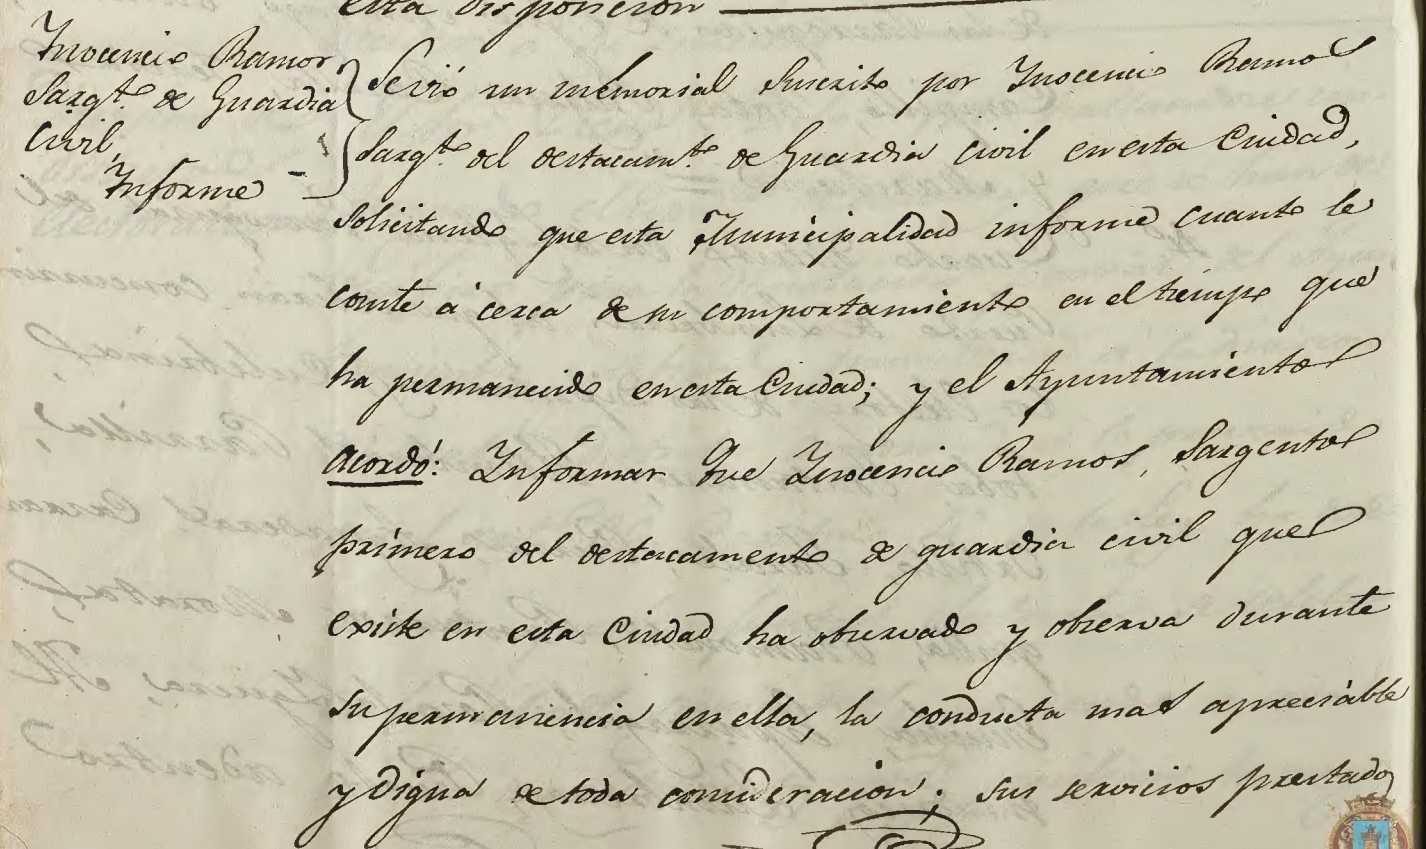 esta disposicion
Inocencio Ramos
Sargto. de Guardia
Civil,
Informe
Se vió un memorial suscrito por Inocencio Ramos
Sargto. del destacamto. de Guardia civil en esta Ciudad,
solicitando que esta Municipalidad informe cuanto le
conste á cerca de su comportamiento en el tiempo que
ha permanecido en esta Ciudad; y el Ayuntamiento
acordó: Informar Que Inocencio Ramos, Sargento
primero del destacamento de guardia civil que
existe en esta Ciudad ha observado y observa durante
su permanencia en ella, la conducta mas apreciable
y digna de toda consideracion; sus servicios prestados